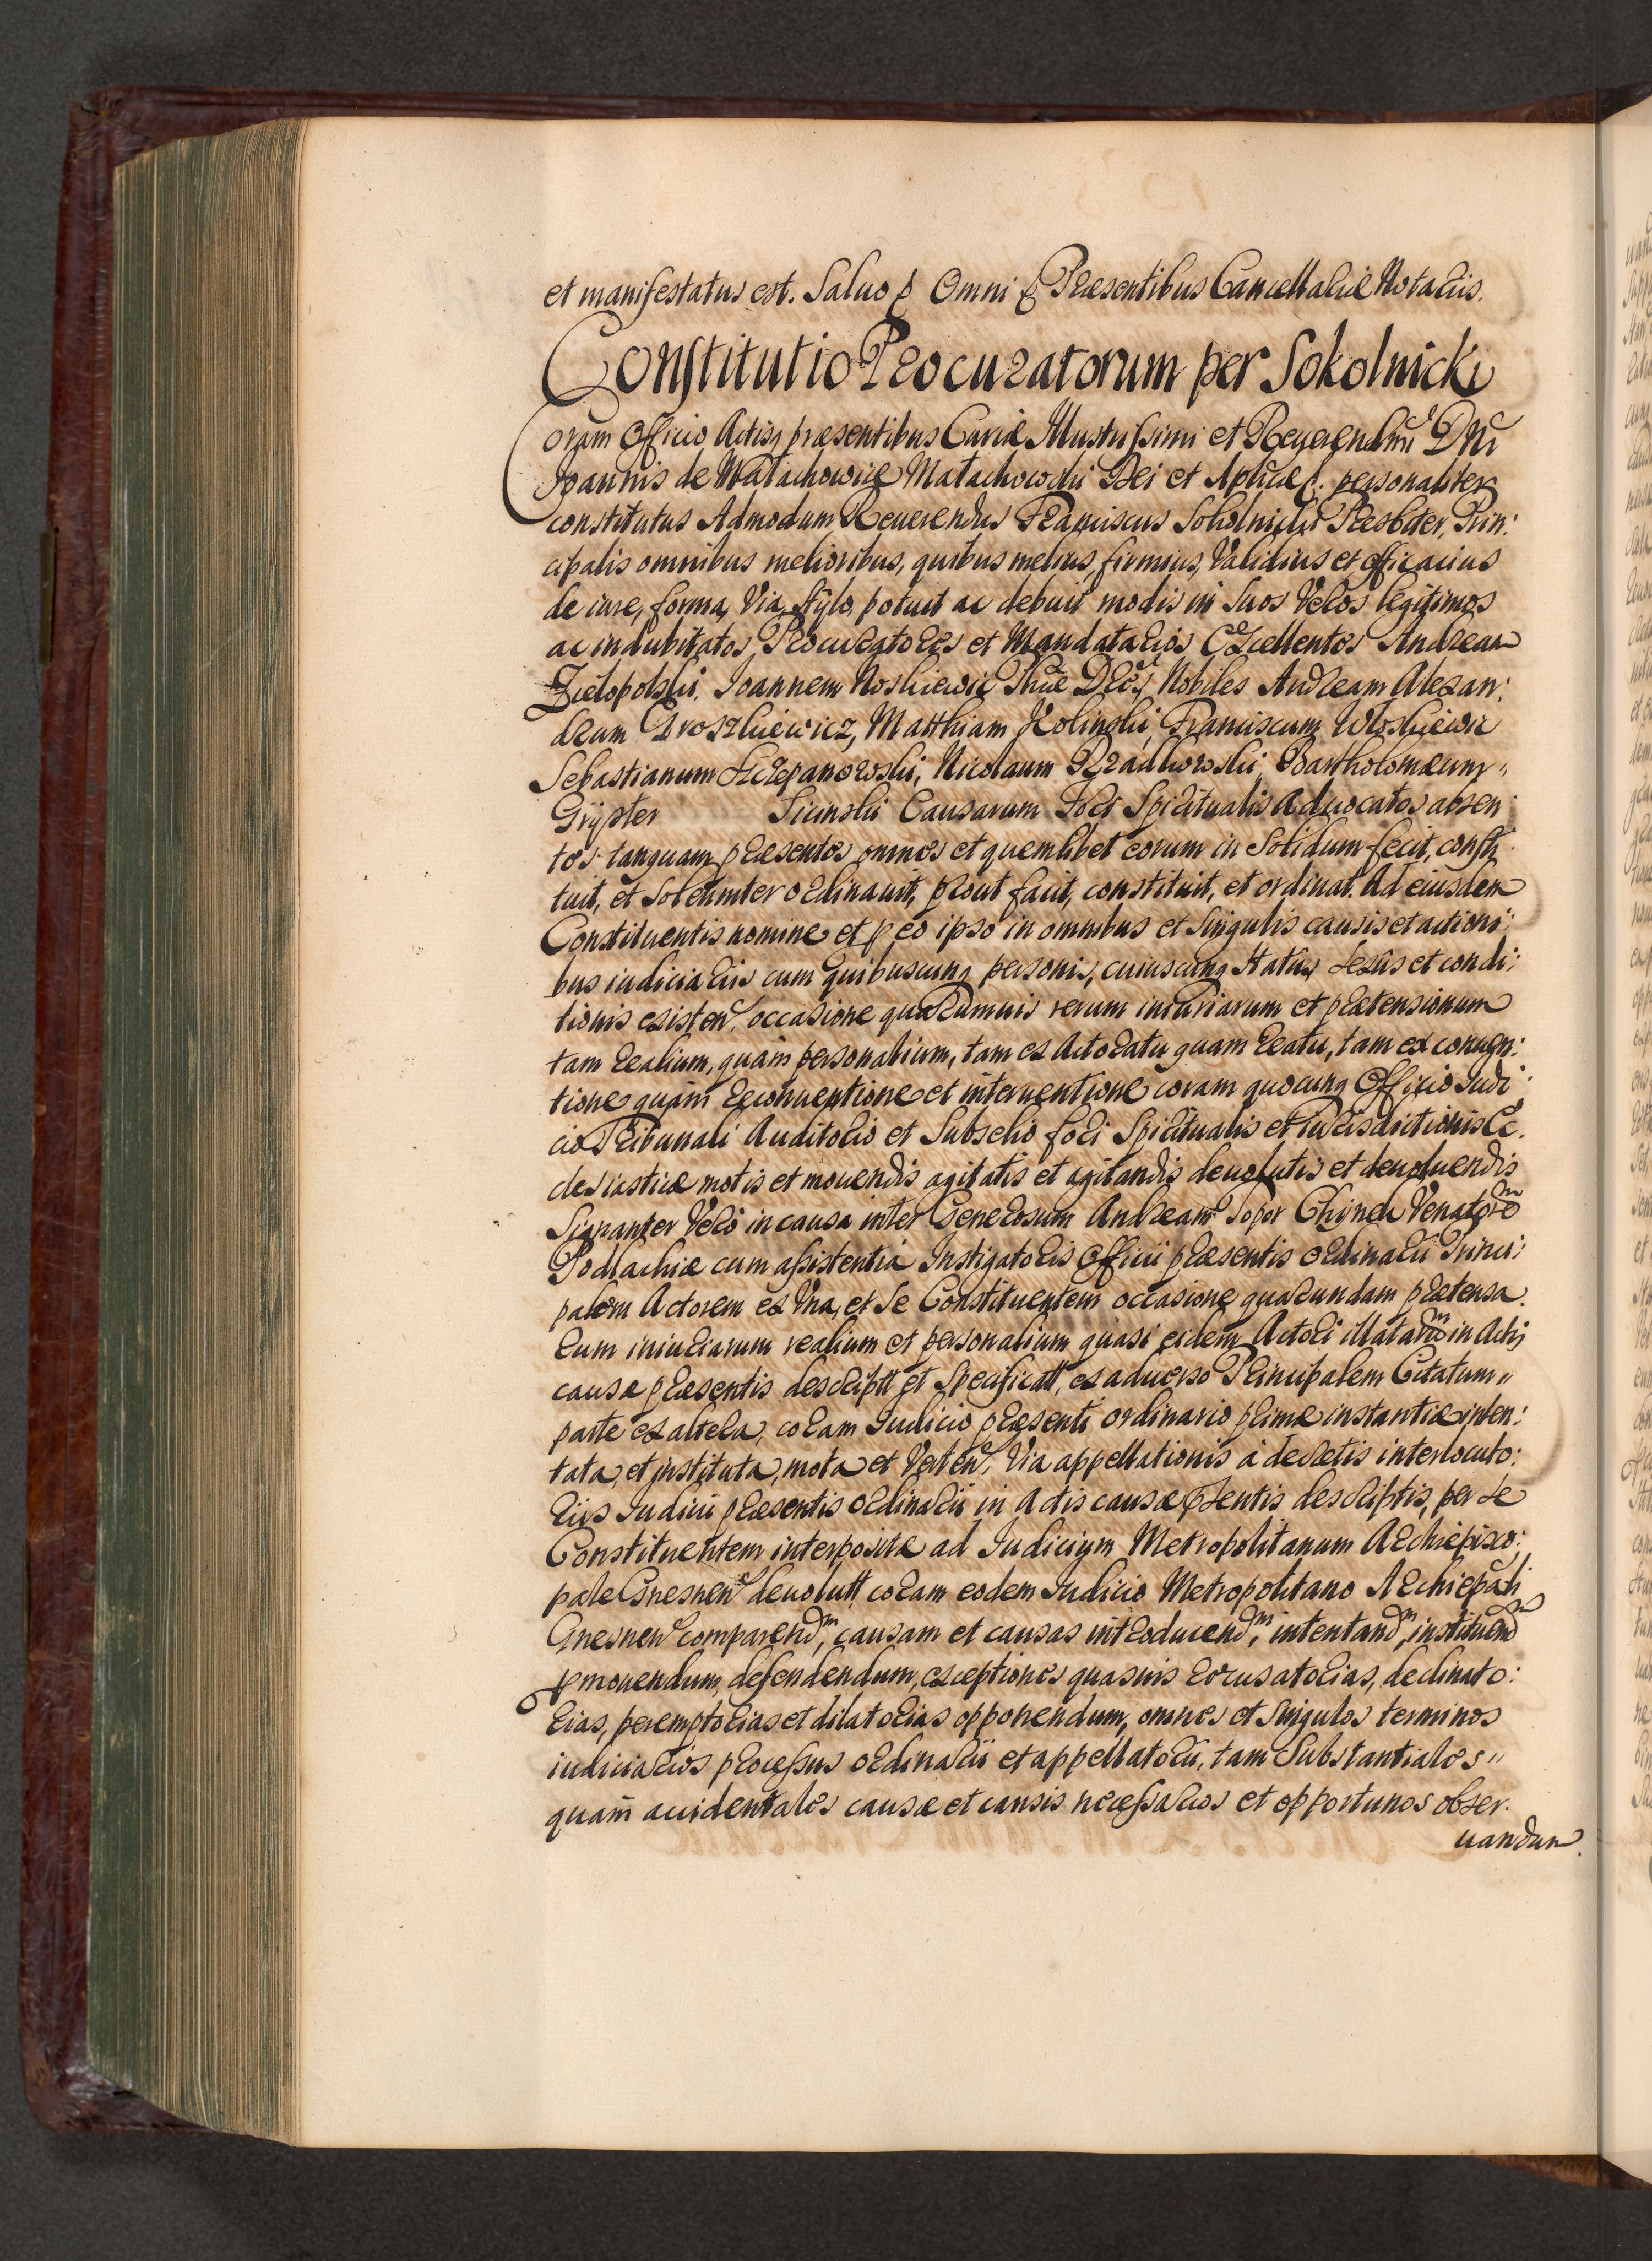 et manifestatus est. Saluo ꝑ Omni ꝑ Præsentibus Cancellariæ Notariis.
Constitutio Procuratorum per Sokolnicki
Coram Officio Actisq præsentibus Curiæ Illustrissimi et Reuerendmi Dni
Joannis de Małachowice Małachowski Dei et Aplicæ S. personaliter
constitutus Admodum Reuerendus Franciscus Sokolnicki Presbiter, Prin:
cipalis omnibus melioribus, quibus melius, firmius, Validius et efficacius
de iure, forma, Via, Stylo, potuit ac debuit modis in Suos Veros legitimos
ac indubitatos, Procuratores et Mandatarios Excellentes Andream
Zielopolski, Joannem Noskiewic Phiæ Dres, Nobiles Andream Alexan:
drum Groszkiewicz, Matthiam Kolinski, Franciscum Wloskiewic
Sebastianum Szczepanowski, Nicolaum Rzadkowski, Bartholomæum
Gryster Sicinski Causarum Fori Spiritualis Aduocatos absen
tes tanquam præsentes omnes et quemlibet eorum in Solidum fecit, consti
tuit, et Solemniter ordinauit, prout facit, constituit, et ordinat. Ad eiusdem
Constituentis nomine et ꝑ eo ipso in omnibus et Singulis causis et actioni:
bus iudiciariis cum quibuscunq personis, cuiuscunq Status Sexus et condi:
tionis existen, occasione quarumuis rerum iniuriarum et prætensionum
tam realium, quàm personalium, tam ex Actoratu quam Reatu, tam ex conuen:
tione quàm reconuentione et interuentione coram quocunq Officio Judi
cio Tribunali Auditorio et Subselio fori Spiritualis et Jurisdictionis Ec.
clesiasticæ motis et mouendis agitatis et agitandis deuolutis et deuoluendis
Signanter Verò in causa inter Generosum Andream Topor Chynek Venatorem
Podlachiæ cum assistentia Instigatoris Officii præsentis ordinarii Princi:
palem Actorem ex Vna, et Se Constituentem occasione quarundam prætensa
rum iniuriarum realium et personalium quasi eidem Actori illatarm in Actis
causæ præsentis descriptt et Specificatt, ex aduerso Principalem Citatum
parte ex altera, coram Judicio præsenti ordinario primæ instantiæ inten:
tata, et instituta, mota et Verten. Via appellationis à decretis interlocuto:
riis Judicii præsentis ordinarii in Actis causæ pntis descriptis, per Se
Constituentem interpositæ ad Judicium Metropolitanum Archiepisco:
pale Gnesnen deuolutt coram eodem Judicio Metropolitano Archiepali
Gnesnen comparendm, causam et causas introducendm, intentandm, instituendm
ꝓmouendum, defendendum, exceptiones quasuis recusatorias, declinato:
rias, peremptorias et dilatorias opponendum, omnes et Singulos terminos
iudiciarios processus ordinarii et appellatorii, tam Substantiales
quàm accidentales causæ et causis necessarios et opportunos obser.
uandum